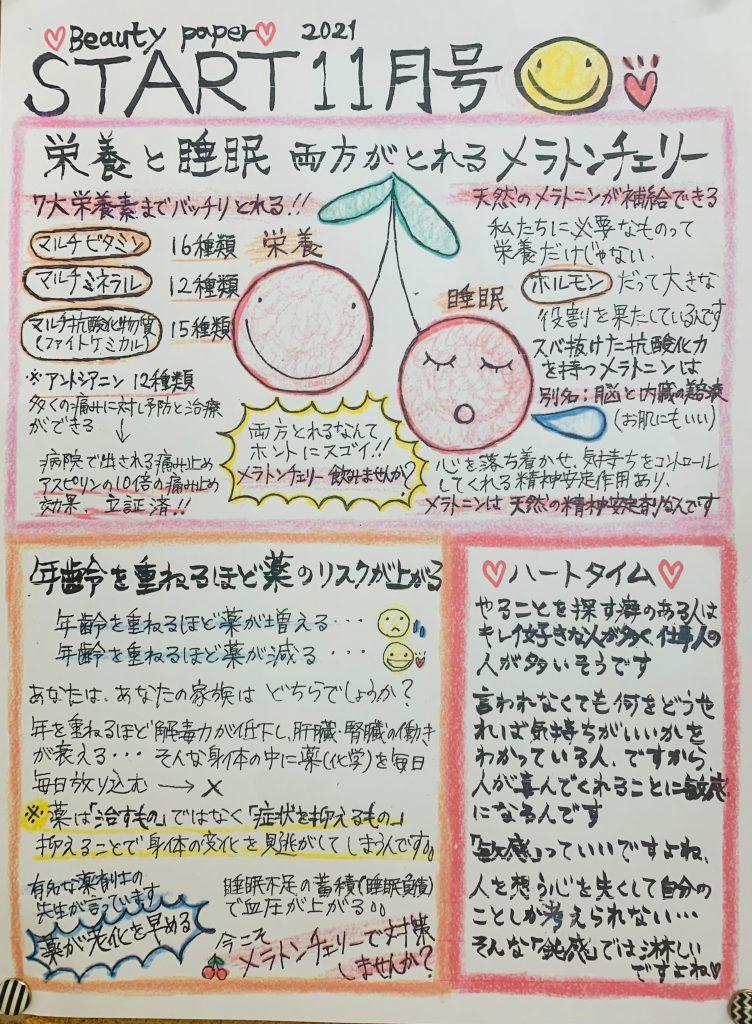 ♡Beauty paper♡ 2021
START 11月号
栄養と睡眠 両方がとれるメラトンチェリー
7大栄養素までバッチリとれる!!
マルチビタミン 16種類
マルチミネラル 12種類
マルチ抗酸化物質
(ファイトケミカル) 15種類
※アントシアニン 12種類
多くの痛みに対し予防と治療
ができる
↓
病院で出される痛み止め
アスピリンの10倍の痛み止め
効果、立証済!!
栄養
睡眠
両方とれるなんて
ホントにスゴイ!!
メラトンチェリー飲みませんか?
天然のメラトニンが補給できる
私たちに必要なものって
栄養だけじゃない、
ホルモン だって大きな
役割を果たしているんです
ズバ抜けた抗酸化力
を持つメラトニンは
別名:脳と内臓の美容液
(お肌にもいい)
心を落ち着かせ、気持ちをコントロール
してくれる精神安定作用あり、
メラトニンは天然の精神安定剤なんです
年齢を重ねるほど薬のリスクが上がる
年齢を重ねるほど薬が増える・・・
年齢を重ねるほど薬が減る・・・
あなたは、あなたの家族は どちらでしょうか?
年を重ねるほど解毒力が低下し、肝臓・腎臓の働き
が衰える・・・ そんな身体の中に薬(化学)を毎日
毎日放り込む → ×
※薬は「治すもの」ではなく「症状を抑えるもの」
抑えることで身体の変化を見逃がしてしまうんです。
有名な薬剤士の
先生が言っています
薬が老化を早める
睡眠不足の蓄積(睡眠負債)
で血圧が上がる。。
今こそ
メラトンチェリーで対策
しませんか?
♡ハートタイム♡
やることを探す癖のある人は
キレイ好きな人が多く仕事人の
人が多いそうです
言われなくても何をどうや
れば気持ちがいいかを
わかっている人、ですから、
人が喜んでくれることに敏感
になる人です
「敏感」っていいですよね、
人を想う心を失くして自分の
ことしか考えられない…
そんな「鈍感」では淋しい
ですよね♡